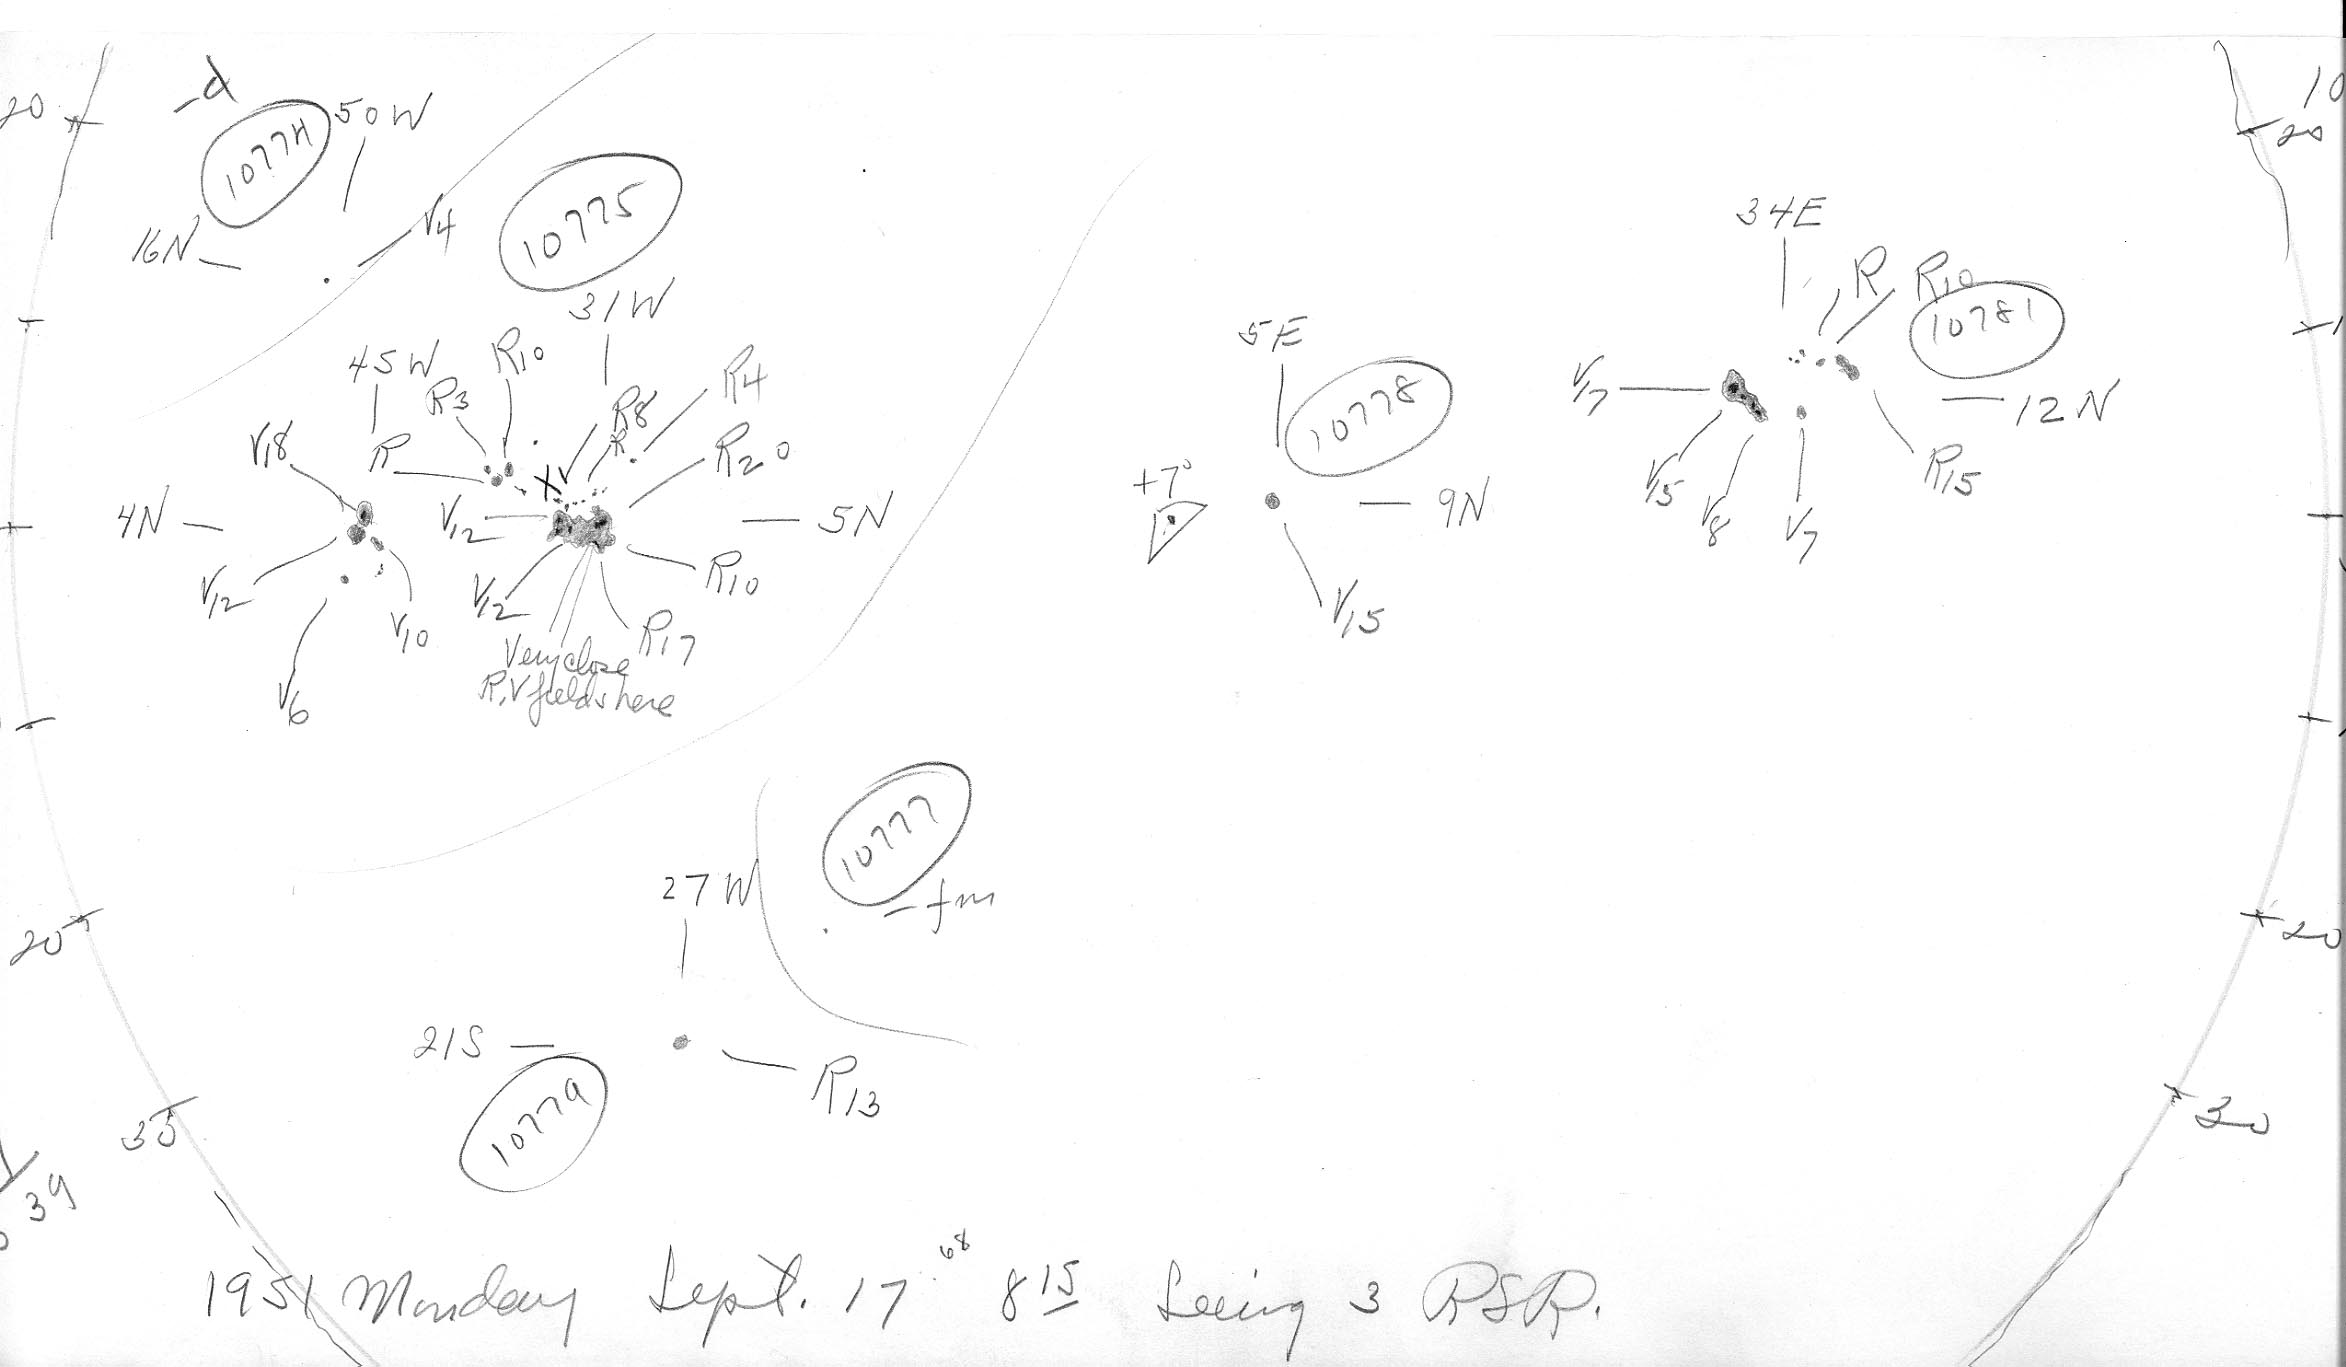 20
-d
10774
50W
16N
V4
10775
31W
45W
R10
R3
R8
R4
R
R
V18
R20
4N
V12
5N
V12
V12
R10
V10
R17
V6
Very close
R,V fields here
5E
10778
+7°
9N
V15
34E
R
R10
10781
V7
12N
V15
V8
V7
R15
10
20
1
10777
-fm
27W
21S
R13
10779
20
30
39
20
30
1951 Monday Sept. 17.68 815 Seeing 3 RSR.